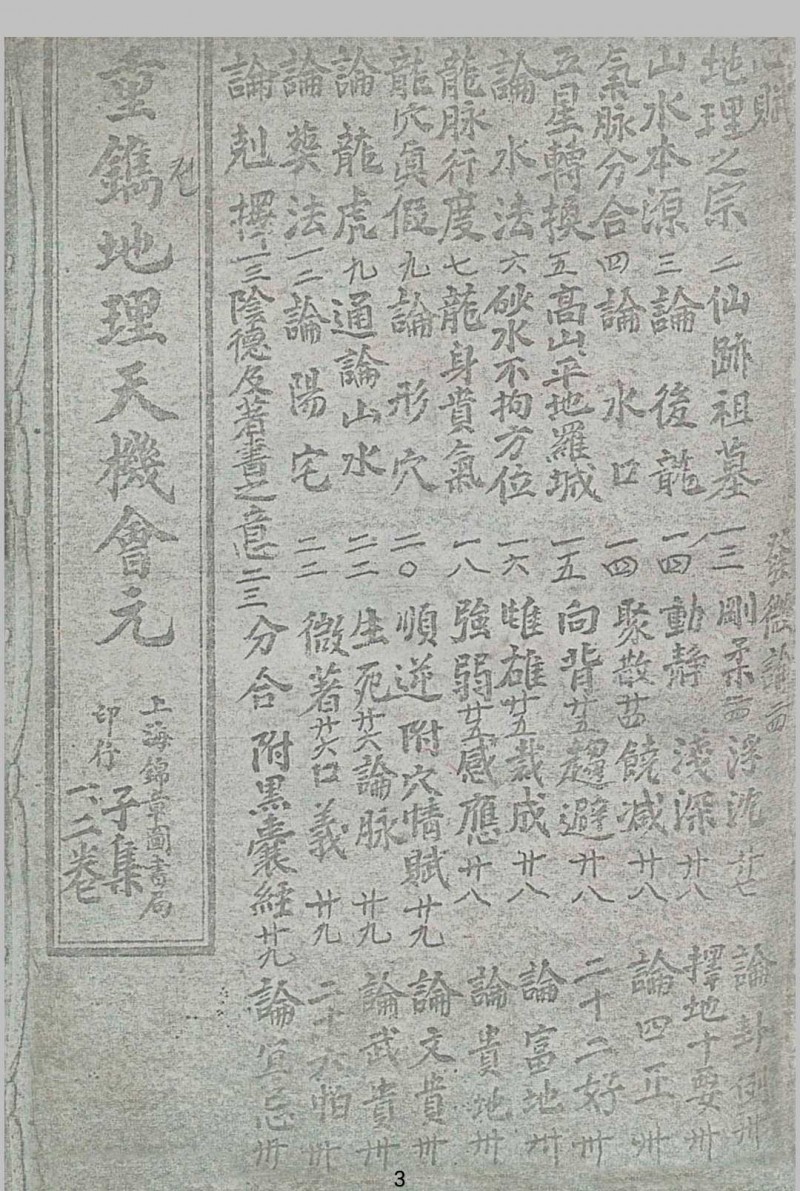 賦 發微論
地理之宗 二 仙跡祖墓 一三 剛柔 浮沈 廿七 論卦例 卅
山水本源 三 論後龍 一四 動靜 淺深 廿八 擇地十要 卅
氣脉分合 四 論水口 一四 聚散 廿四 饒减 廿八 論四正 卅
五星轉換 五 高山平地羅城 一五 向背 廿五 趨避 廿八 二十二好 卅
論水法 六 砂水不拘方位 一六 雌雄 廿五 裁成 廿八 論富地 卅
龍脉行度 七 龍身貴氣 一八 強弱 廿五 感應 廿八 論貴地 卅
龍穴眞假 九 論形穴 二〇 順逆 附穴情賦 廿九 論文貴 卅
論龍虎 九 通論山水 二二 生死 廿六 論脉 廿九 論武貴 卅
論葬法 一二 論陽宅 二二 微著 廿六 口義 廿九 二十六怕 卅
論剋擇 一三 陰德及著書之意 二三 分合 附黑囊經 廿九 論宜忌 卅
重鐫地理天機會元
上海錦章圖書局
印行
子集
一二卷
3